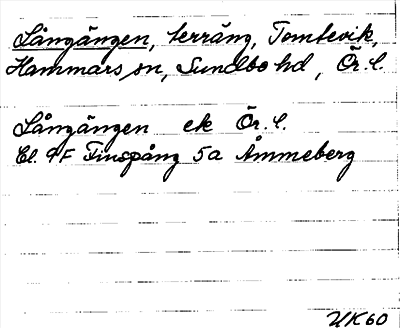 Långängen, terräng, Tomtevik,
Hammars sn, Sundbo hd, Ör. l.
Långängen ek Ör. l.
Bl. 9F Finspång 5a Åmmeberg
UK60